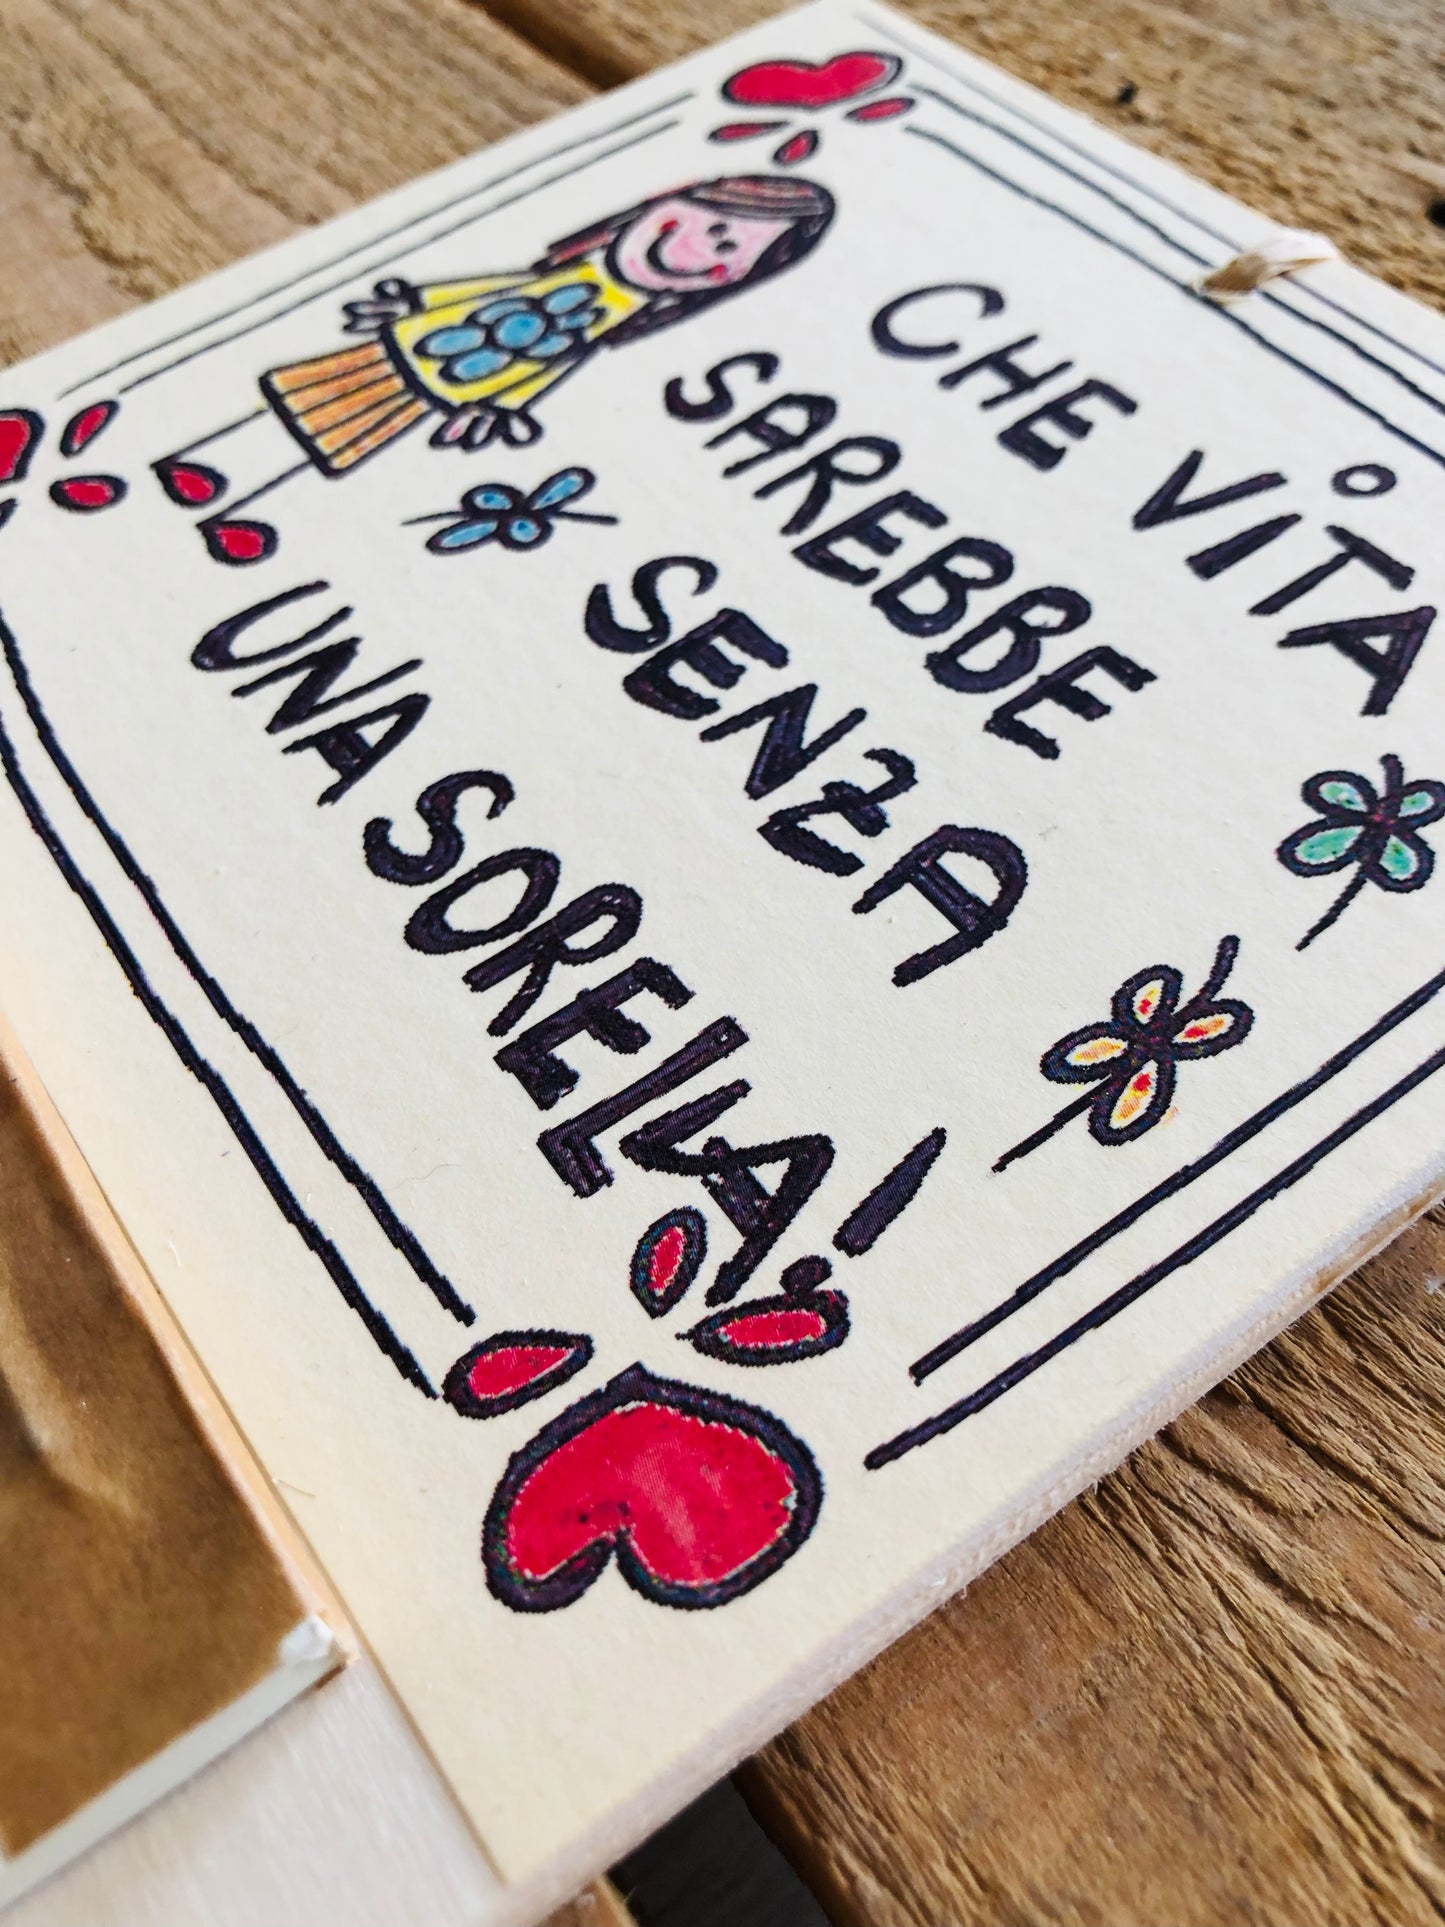 CHE VITA
SAREBBE
SENZA
UNA SORELLA!